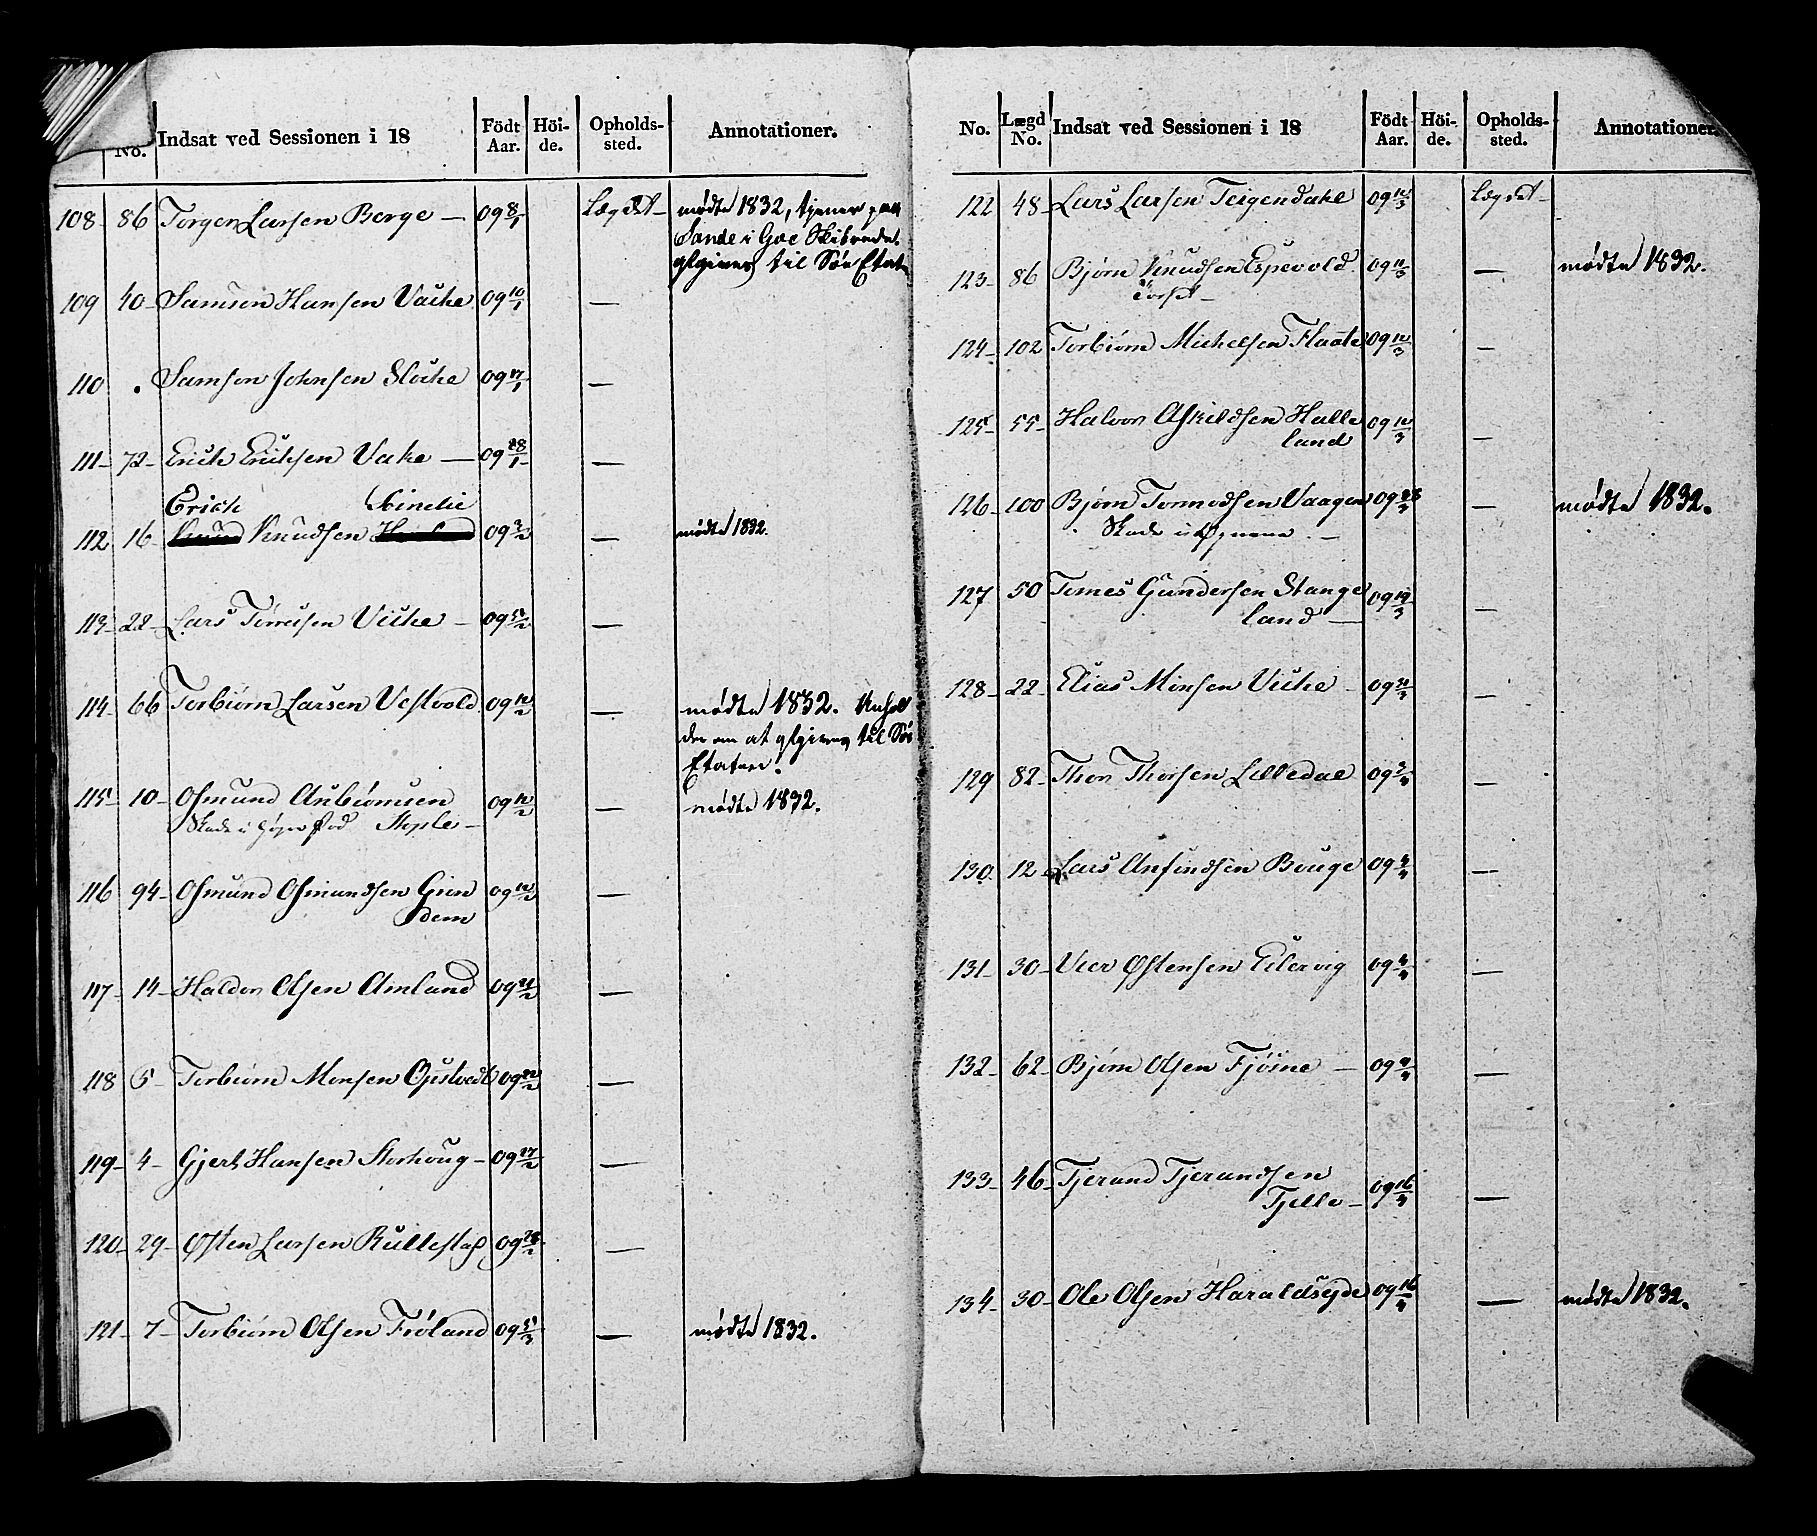 No. Indsat ved Sessionen i 18 Födt Aar. Höi-de. Opholds-sted. Annotationer.
108 - 86 Torger Larsen Berge - 09 8/1 Lægdet - mødte 1832, tjener paa
Sande i
afgives til Søe Etaten
109 40 - Samson Hansen Vicke 09 10/1 -
110 . Samson Johnsen Støche 09 17/1 -
111 - 72 - Erich Erichsen Vake - 09 28/1 -
Erich
112 16 - Knud Knudsen 09 3/2 - mødte 1832.
113 - 22 - Lars Tørrisen Vicke - 09 5/2 -
114 - 66 Torbiørn Larsen Vestvold 09 12/2 - mødte 1832.
om at afgives til Søe
Etaten.
115 - 10 - Osmund Aubiørnsen 09 12/2 - mødte 1832.
Skade i høyre Fod Stople -
116 94 - Osmund Osmundsen Gien 09 12/2 -
dem
117 - 14 - Haldor Olsen Amland 09 21/2 -
118 5 - Torbiørn Monsen Opstvedt 09 22/2 -
119 - 4 - Gjert Hansen Storhoug - 09 27/2 -
120 - 29 - Østen Larsen Rullestad 09 28/2 -
121 - 7 - Torbiørn Olsen Frøland 09 5/3 - mødte 1832.
No. Lægd No. Indsat ved Sessionen i 18 Födt Aar. Höi-de. Opholds-sted. Annotationer.
122 48 - Lars Larsen Teigendahl 09 12/3 Lægdet -
123 - 86 Bjørn Knudsen Espevold 09 11/3 - mødte 1832.
124 - 102 Torbiørn Michelsen Flaate 09 12/3 -
125 - 55 - Halvor Askildsen Halle 09 12/3 -
land
126 - 100 Bjørn Tormodsen Vaagen 09 - mødte 1832.
Skade i Øynene -
127 50 Tomes Gundersen Stange 09 19/3 -
land -
128 - 22 - Elias Monsen Vicke - 09 31/3 -
129 82 - Thor Thorsen Lilledal 09 3/4 -
130 12 Lars Anfindsen Bouge 09 4/4 -
131 - 30 - Vier Østensen Eilervig 09 4/4 -
132 - 62 - Bjørn Olsen Fjøsne - 09 9/4 -
133 - 46 - Tjerand Tjerandsen 09 16/4 -
Tjelle -
134 - 30 - Ole Olsen Haraldseyde 09 16/4 - mødte 1832.